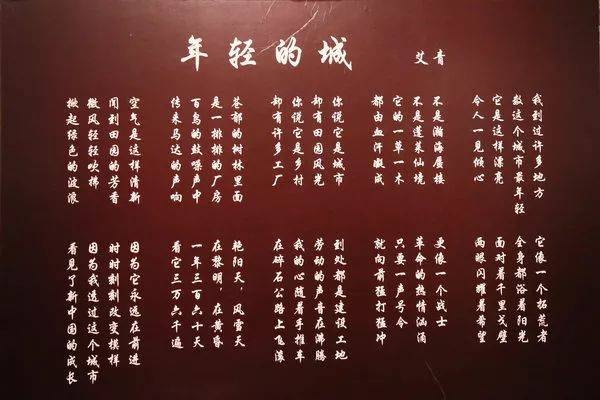 年轻的城 艾青
我到过许多地方
数这个城市最年轻
它是这样漂亮
令人一见倾心
不是瀚海蜃楼
不是蓬莱仙境
它的一草一木
都由血汗凝成
你说它是城市
却有田园风光
你说它是乡村
却有许多工厂
苍郁的树林里面
是一排排的厂房
百鸟的鼓噪声中
传来马达的声响
空气是这样清新
闻到田园的芳香
微风轻轻吹拂
掀起绿色的波浪
它像一个拓荒者
全身都浴着阳光
面对着千里戈壁
两眼闪耀着希望
更像一个战士
革命的热情汹涌
只要一声号令
就向前猛打猛冲
到处都是建设工地
劳动的声音在沸腾
我的心随着手推车
在碎石公路上飞滚
艳阳天，风雪天
在黎明，在黄昏
一年三百六十天
看它三万六千遍
因为它永远在前进
时时刻刻改变模样
因为我透过这个城市
看见了新中国的成长